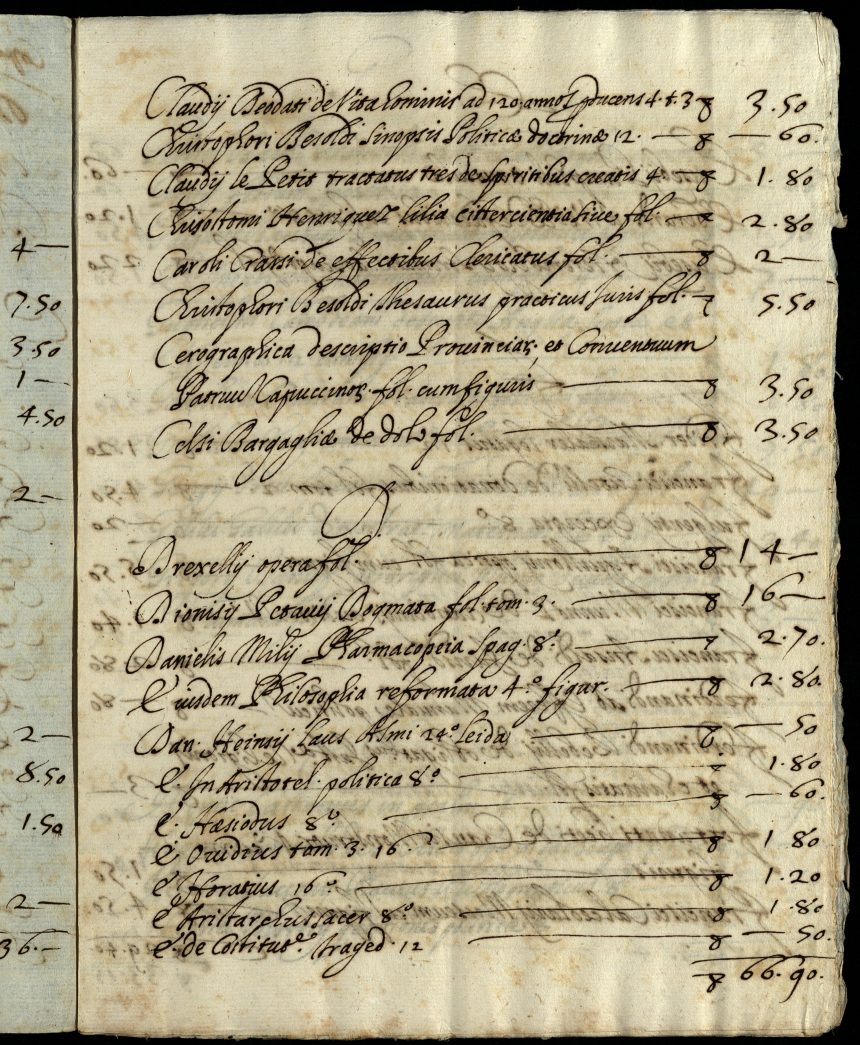 4 —
7.50
3.50
1 —
4.50
2 —
2 —
8.50
1.50
2 —
36.—
Claudij Deodati de Vita hominis ad 120. annos ducens 4. t. 3 8 3.50
Christophori Besoldi Sinopsis Politicæ doctrinæ 12. — 8 — 60.
Claudij le Petit tractatus tres de Spiritibus creatis 4° — 8 1.80
Chrisostomi Henriquez lilia cistercientia siue fol. — 8 2.80
Caroli Crassi de effectibus Clericatus fol. — 8 2 —
Christophori Besoldi Thesaurus practicus Iuris fol. — 8 5.50
Cerographica descriptio Prouinciar. et Conuentuum
Patruu Capuccinor. fol. cum figuris — 8 3.50
Celsi Bargagliæ de dolo fol. — 8 3.50
D
Drexelij opera fol. — 8 14 —
Dionisij Petauij Dogmata fol. tom. 3. — 8 16 —
Danielis Milij Pharmacopeia Spag. 8.° — 8 2.70.
Eiusdem Philosophia reformata 4.° figur. — 8 2.80.
Dan. Heinsij Laus Asini 24.° Leida — 8 — 50
E. In Aristotel. politica 8° — 8 1.80
E. Hæsiodus 8° — 8 — 60.
E Ouidius tom. 3. 16.° — 8 1.80
E Horatius 16.° — 8 1.20
E Aristarchus sacer 8.° — 8 1.80
E. de Costitut.e traged. 12 — 8 — 50.
8 66.90.